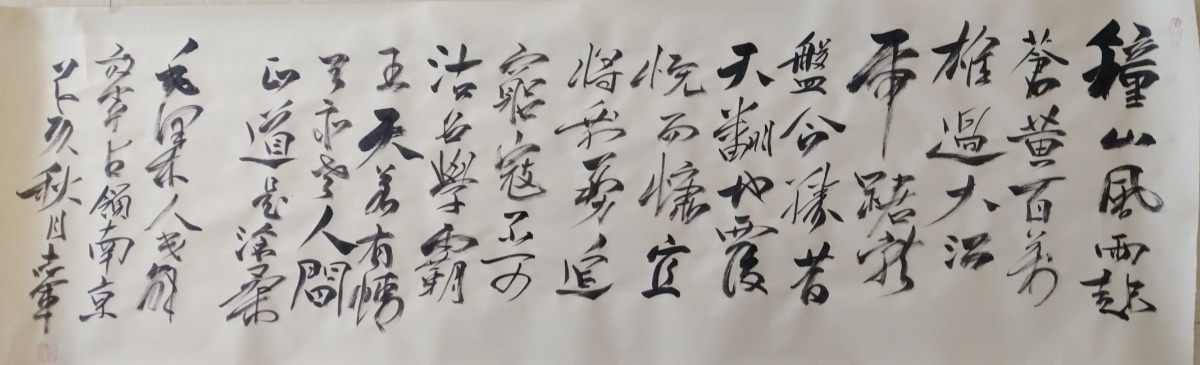 鐘山風雨起
蒼黃百萬
雄過大江
虎踞龍
盤今勝昔
天翻地覆
慨而慷宜
將剩勇追
窮寇不可
沽名學霸
王天若有情
天亦老人間
正道是滄桑
毛澤東人民解
放軍占領南京
己亥秋月